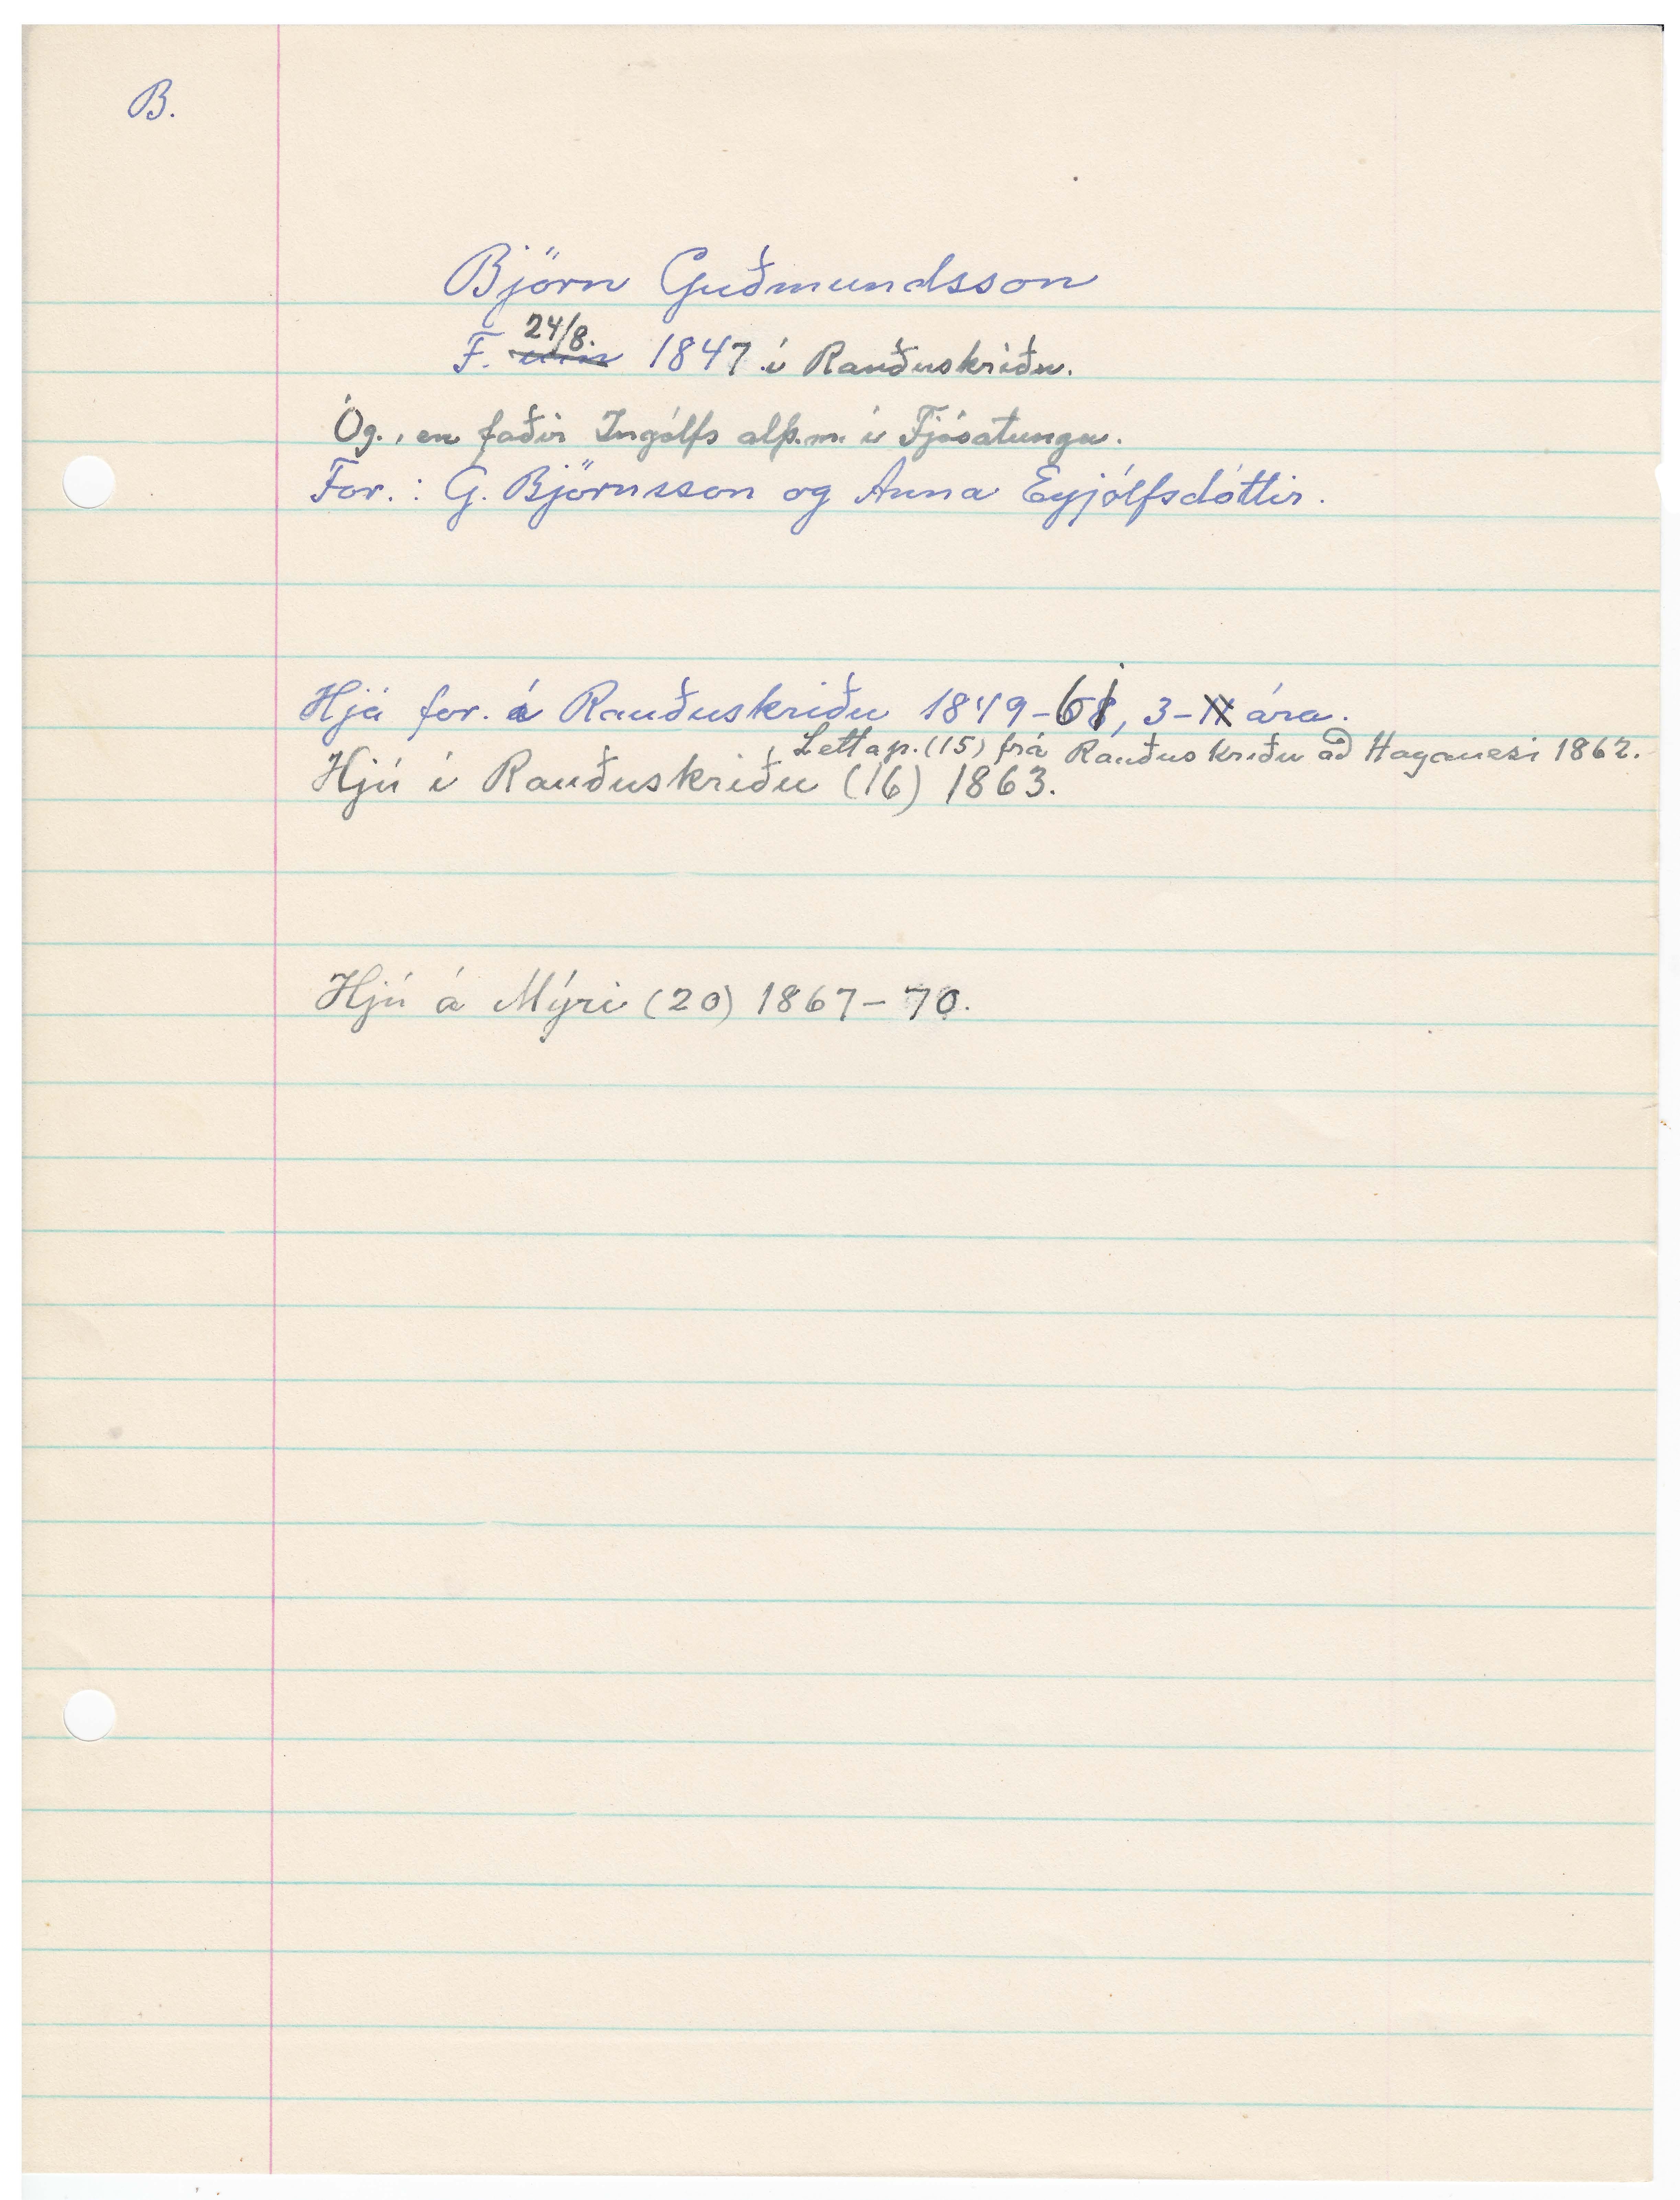 B.
Björn Guðmundsson
F. 24/8. 1847 í Rauðuskriðu.
Óg., en faðir Ingólfs alþ.m. í Fjósatungu.
For.: G. Björnsson og Anna Eyjólfsdóttir.
Hjá for. á Rauðuskriðu 1849-61, 3- ára.
Léttap. (15) frá Rauðuskriðu að Haganesi 1862.
Hjú í Rauðuskriðu (16) 1863.
Hjú á Mýri (20) 1867-70.